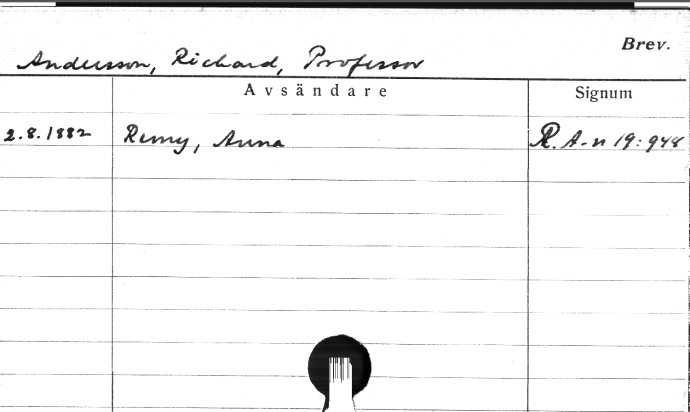 Brev.
Andersson, Richard, Professor
Avsändare Signum
2.8.1882 Remy, Anna R. A-n 19:948